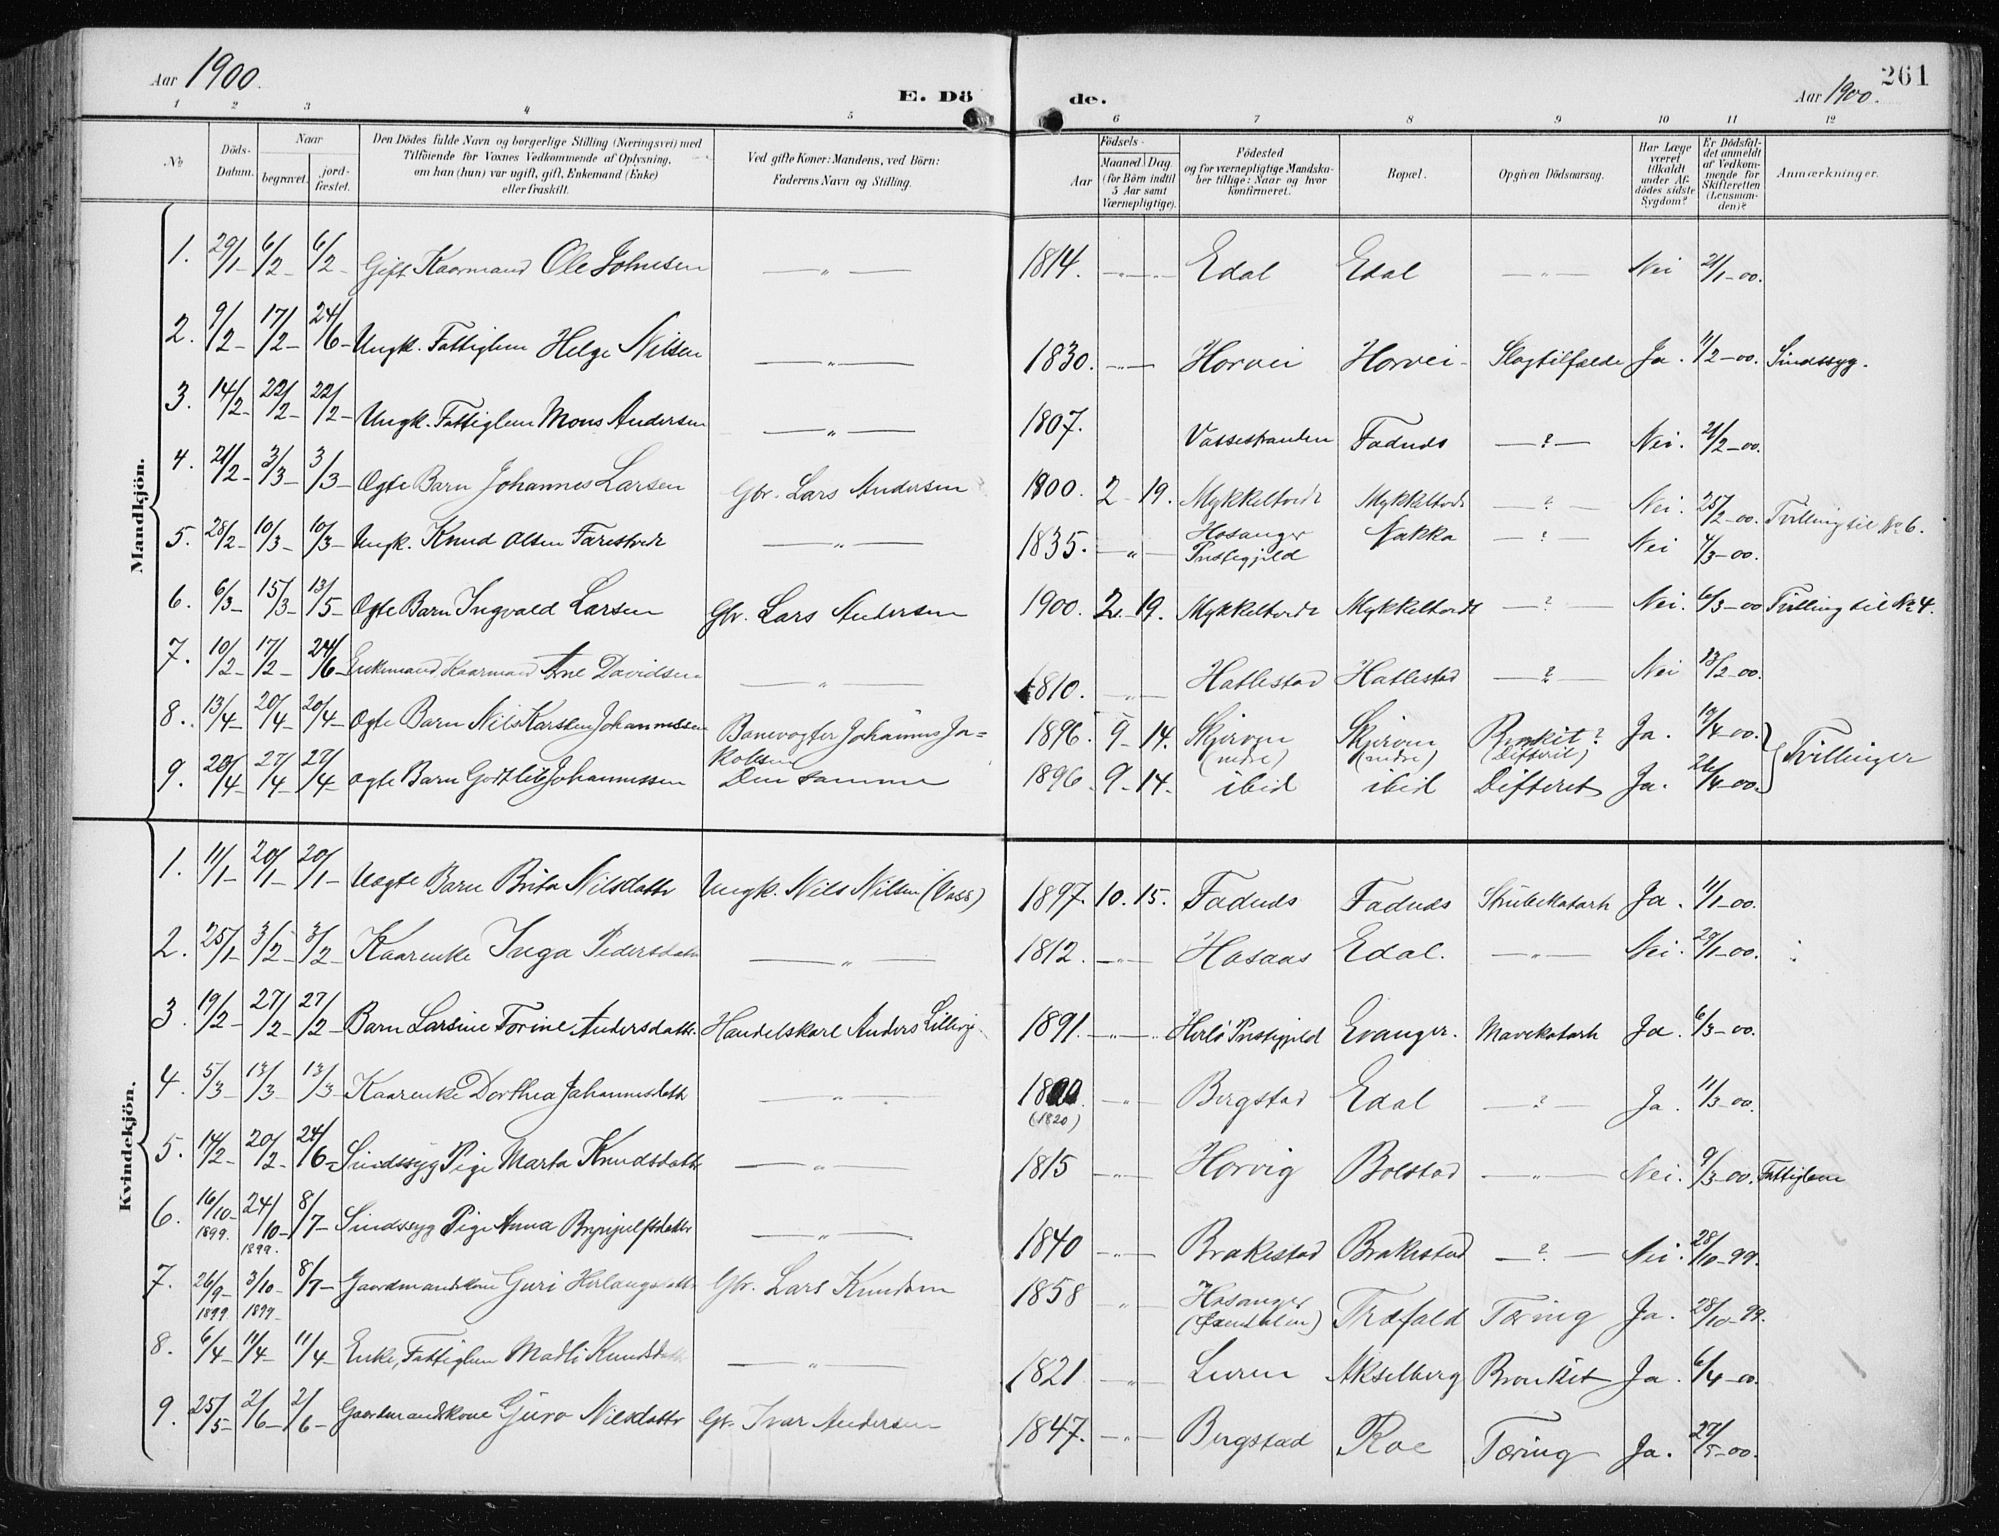 Aar 1900. E. Dö de. Aar 1900. 261
1 2 3 4 5 6 7 8 9 10 11 12
No Döds-Datum. Naar begravet. jord-fæstet. Den Dödes fulde Navn og borgerlige Stilling (Næringsvei) med Tilföiende for Voxnes Vedkommende af Oplysning, om han (hun) var ugift, gift, Enkemand (Enke) eller fraskilt. Ved gifte Koner: Mandens, ved Börn: Faderens Navn og Stilling. Födsels- Aar Maaned Dag. (for Börn indtil 5 Aar samt Værnepligtige). Födested og for værnepligtige Mandskaber tillige: Naar og hvor konfirmeret. Bopæl. Opgiven Dödsaarsag. Har Læge været tilkaldt under Afdödes sidste Sygdom? Er Dödsfaldet anmeldt af Vedkommende for Skifteretten (Lensmanden)? Anmærkninger.
Mandkjön.
1. 29/1 6/2 6/2 Gift Kaarmand Ole Johnsen — " — 1814. — " — Edal Edal — " — Nei 21/1-00.
2. 9/2 17/2 24/6 Ungk. Fattiglem Helge Nilsen — " — 1830. — " — Horvei Horvei Slagtilfælde Ja. 11/2-00. Sindssyg.
3. 14/2 22/2 22/2 Ungk. Fattiglem Mons Andersen — " — 1807. Vossestranden Fadnes — ? — Nei. 21/2-00.
4. 21/2 3/3 3/3 Ægte Barn Johannes Larsen Gbr. Lars Andersen 1800. 2 - 19. Mykkeltvedt Mykkeltvedt — ? — Nei. 25/2-00. Tvilling til No 6.
5. 28/2 10/3 10/3 Ungk. Knud Olsen Farestvedt — " — 1835. — " — Hosanger Præstegjeld Nakka — ? — Nei 4/3-00.
6. 6/3 15/3 13/5 Ægte Barn Ingvald Larsen Gbr. Lars Andersen 1900. 2. 19. Mykkeltvedt Mykkeltvedt — ? — Nei. 6/3-00 Tvilling til No 4.
7. 10/2 17/2 24/6 Enkemand Kaarmand Arne Davidsen — " — 1810. — " — Hatlestad Hatlestad — ? — Nei 13/2-00.
8. 13/4 20/4 20/4 Ægte Barn Nils Karsten Johannessen Banevogter Johannes Jakobsen 1896. 9 - 14. Skjerven (nedre) Skjerven (nedre) Bronkit? (Difterit) Ja. 19/4-00. Tvillinger
9. 20/4 27/4 27/4 Ægte Barn Godtlib Johannessen Den samme 1896. 9 - 14. ibid ibid Difterit Ja. 26/4-00.
Kvindekjön.
1. 11/1 20/1 20/1 Uægte Barn Brita Nilsdatter Ungk. Nils Nilsen (Voss) 1897. 10. 15. Fadnes Fadnes Strubekatarh Ja. 11/1-00.
2. 25/1 3/2 3/2 Kaarenke Inga Pedersdatter — " — 1812. — " — Hasaas Edal. — " — Nei. 29/1-00.
3. 19/2 27/2 27/2 Barn Larsine Torine Andersdatter Handelskarl Anders 1891. — " — Herlö Præstegjeld Evanger. Mavekatarh Ja. 6/3-00.
4. 5/3 13/3 13/3 Kaarenke Dorthea Johannesdatter — " — 1820. (1820) — " — Bergstad Edal — ? — Ja. 11/3-00.
5. 14/2 20/2 24/6 Sindssyg Pige Marta Knudsdatter — " — 1815 — " — Horvig Bolstad — " — Nei. 9/3-00. Fattiglem
6. 16/10 1899. 24/10 1899. 8/7 Sindssyg Pige Anna Brynjulfsdatter — " — 1840 — " — Brakestad Brakestad — ? — Nei. 28/10-99.
7. 26/9 1899 3/10 1899. 8/7 Gaardmandskone Guri Herlaugsdatter Gbr. Lars Knudsen 1858 " Hosanger Træfald Tæring Ja. 28/10-99.
8. 6/4 11/4 11/4 Enke, Fattiglem Madli Knudsdatter — " — 1821 " Luren Akselberg Bronkit Ja. 6/4-00.
9. 25/5 2/6 2/6 Gaardmandskone Guro Nilsdatter Gbr. Ivar Andersen 1847. — " — Bergstad Roe Tæring Ja. 27/5-00.